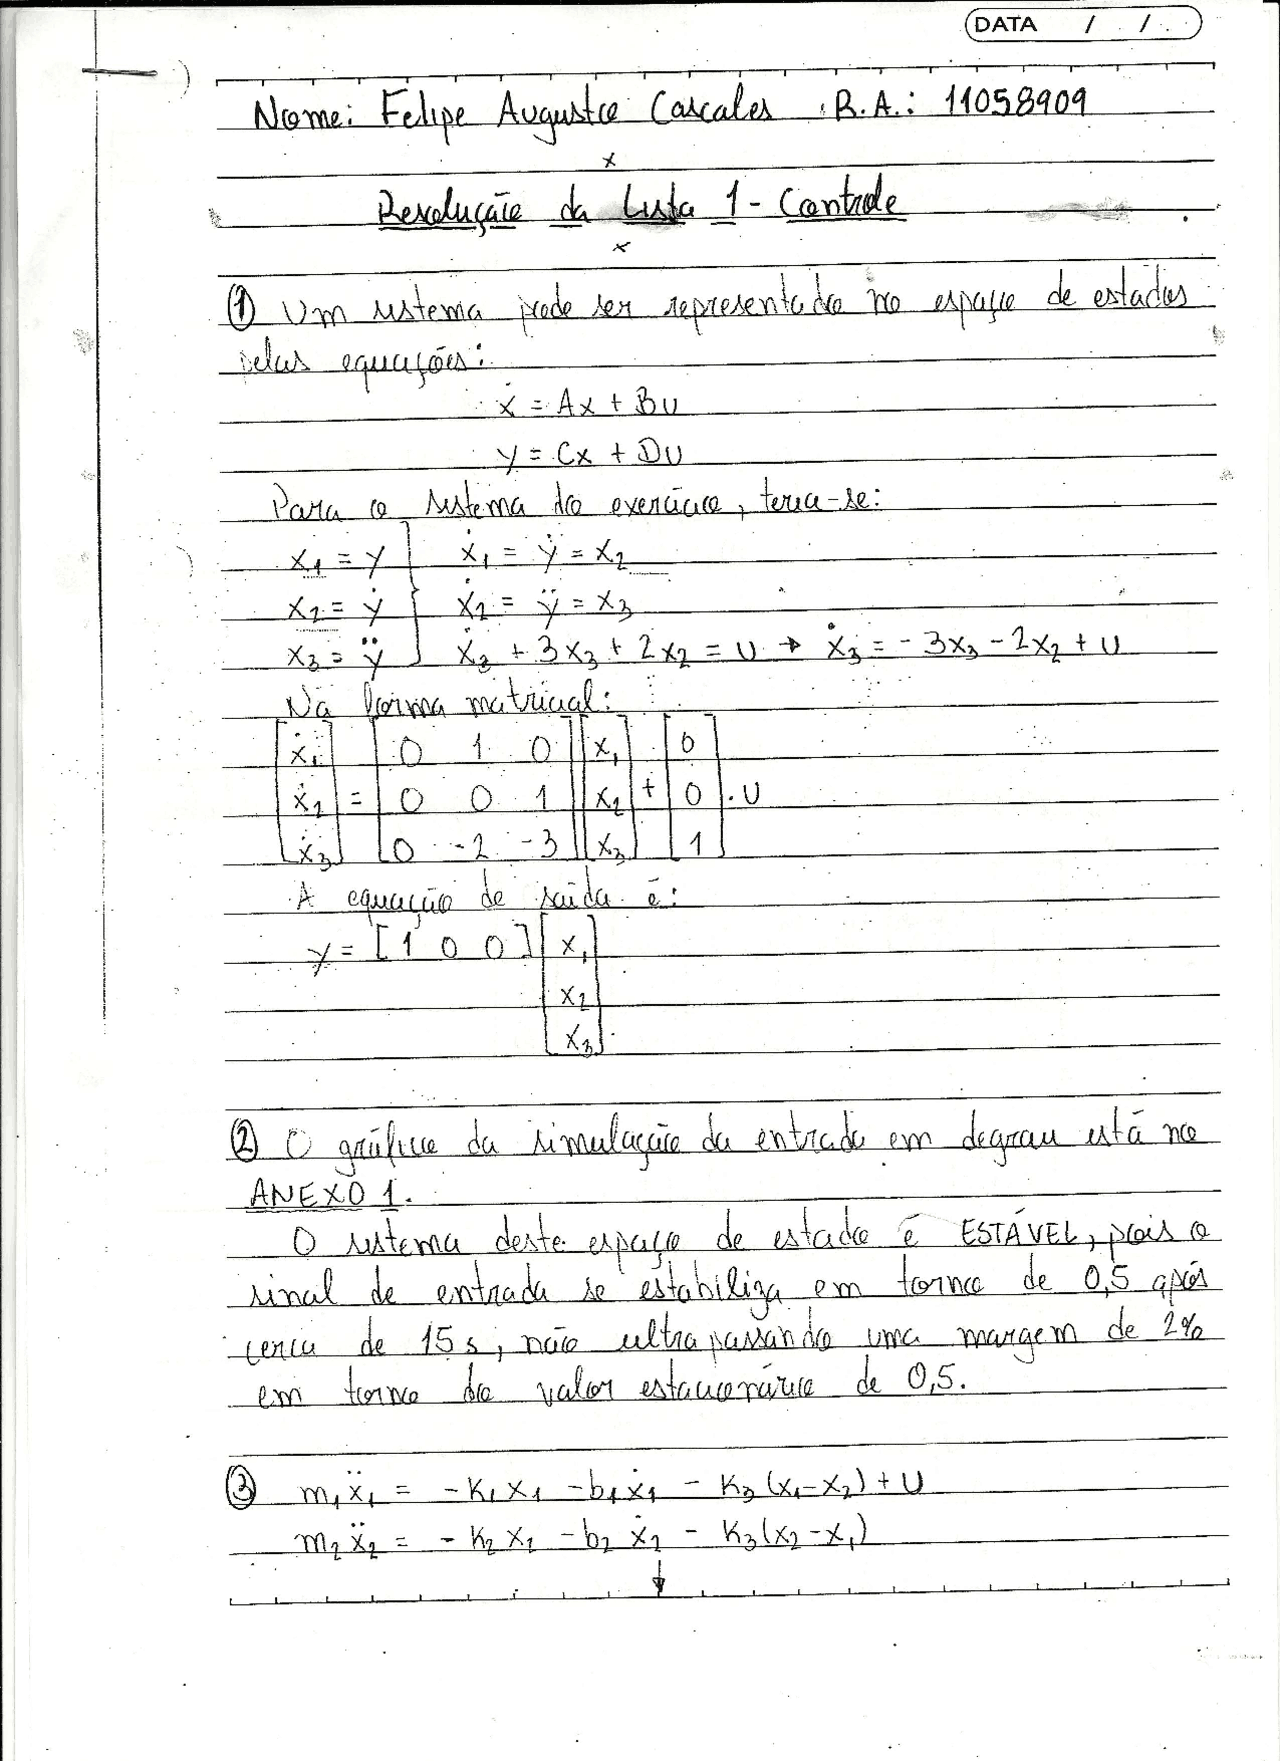 DATA / /
Nome: Felipe Augusto Cascales R.A.: 11058909
x
Resolução da Lista 1 - Controle
x
① Um sistema pode ser representado no espaço de estados
pelas equações:
ẋ = Ax + BU
y = Cx + DU
Para o sistema do exercício, teria-se:
x₁ = y } ẋ₁ = ẏ = x₂
x₂ = ẏ } ẋ₂ = ÿ = x₃
x₃ = ÿ } ẋ₃ + 3x₃ + 2x₂ = U → ẋ₃ = -3x₃ - 2x₂ + U
Na forma matricial:
[ẋ₁] [0 1 0] [x₁] [0]
[ẋ₂] = [0 0 1] [x₂] + [0] . U
[ẋ₃] [0 -2 -3] [x₃] [1]
A equação de saída é:
y = [1 0 0] [x₁]
[x₂]
[x₃]
② O gráfico da simulação da entrada em degrau está no
ANEXO 1.
O sistema deste espaço de estado é ESTÁVEL, pois o
sinal de entrada se estabiliza em torno de 0,5 após
cerca de 15 s, não ultrapassando uma margem de 2%
em torno do valor estacionário de 0,5.
③ m₁ẍ₁ = -K₁x₁ - b₁ẋ₁ - K₃(x₁-x₂) + U
m₂ẍ₂ = -K₂x₂ - b₂ẋ₂ - K₃(x₂-x₁)
↓